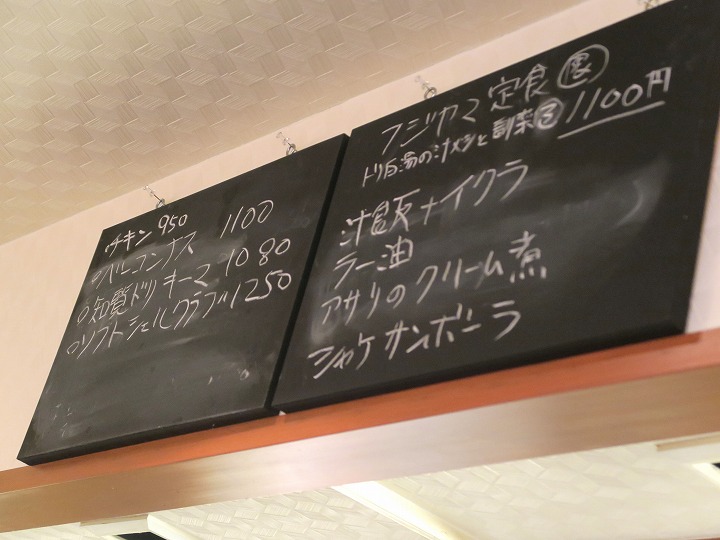 チキン 950
○ベーコンナス 1100
○知覧ドリキーマ 1080
○ソフトシェルクラブ 1250
フジヤマ定食
トリ白湯の汁メシと副菜③ 1100円
汁飯ナイクラ
ラー油
アサリのクリーム煮
シャケサンボーラ